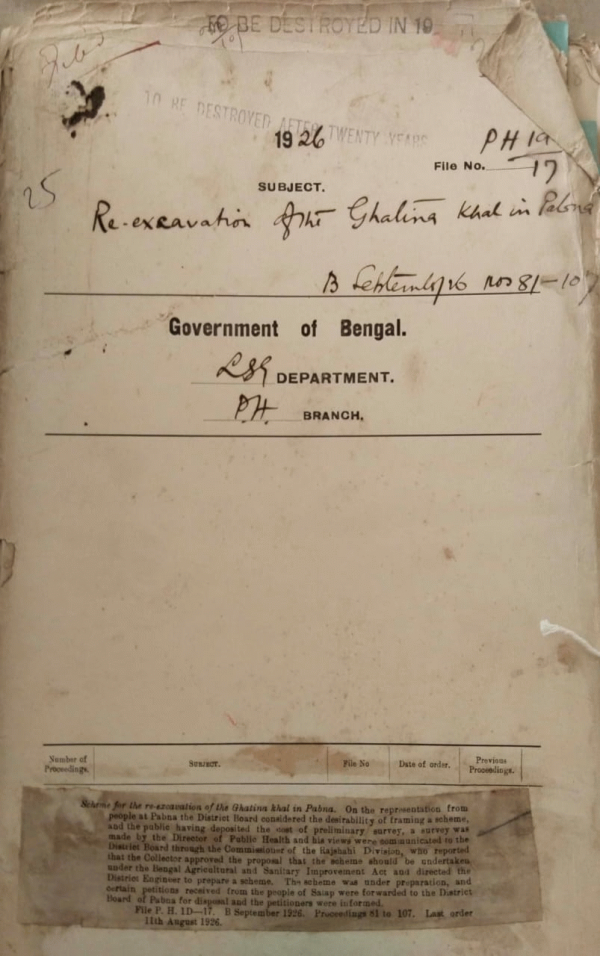 TO BE DESTROYED IN 19
TO BE DESTROYED AFTER TWENTY YEARS
1926
PH 1D
File No. 17
25
SUBJECT.
Re-excavation of the Ghatina Khal in Pabna
B September/26 nos 81-107
Government of Bengal.
LSG DEPARTMENT.
P.H. BRANCH.
Number of Proceedings. SUBJECT. File No Date of order. Previous Proceedings.
Scheme for the re-excavation of the Ghatina khal in Pabna. On the representation from
people at Pabna the District Board considered the desirability of framing a scheme,
and the public having deposited the cost of preliminary survey, a survey was
made by the Director of Public Health and his views were communicated to the
District Board through the Commissioner of the Rajshahi Division, who reported
that the Collector approved the proposal that the scheme should be undertaken
under the Bengal Agricultural and Sanitary Improvement Act and directed the
District Engineer to prepare a scheme. The scheme was under preparation, and
certain petitions received from the people of Salap were forwarded to the District
Board of Pabna for disposal and the petitioners were informed.
File P. H. 1D—17. B September 1926. Proceedings 81 to 107. Last order
11th August 1926.